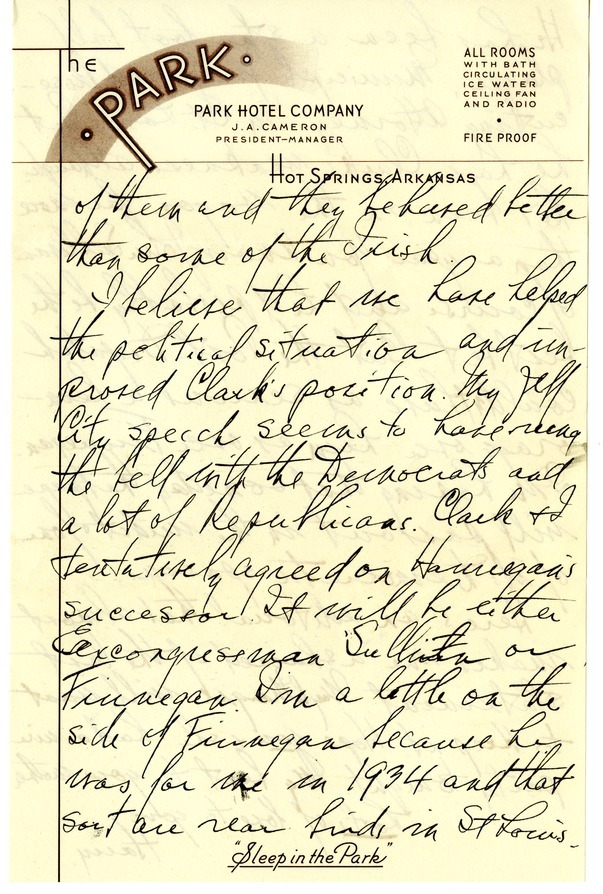 The
PARK.
ALL ROOMS
WITH BATH
CIRCULATING
ICE WATER
CEILING FAN
AND RADIO
•
FIRE PROOF
PARK HOTEL COMPANY
J. A. CAMERON
PRESIDENT–MANAGER
HOT SPRINGS, ARKANSAS
of them and they behaved better
than some of the Irish.
I believe that we have helped
the political situation and im-
proved Clark's position. My Jeff
City speech seems to have rung
the bell with the Democrats and
a lot of Republicans. Clark & I
tentatively agreed on Hannegan's
successor. It will be either
Excongressman Sullivan or
Finnegan. I'm a little on the
side of Finnegan because he
was for me in 1934 and that
sort are rear birds in St Louis.
"Sleep in the Park"